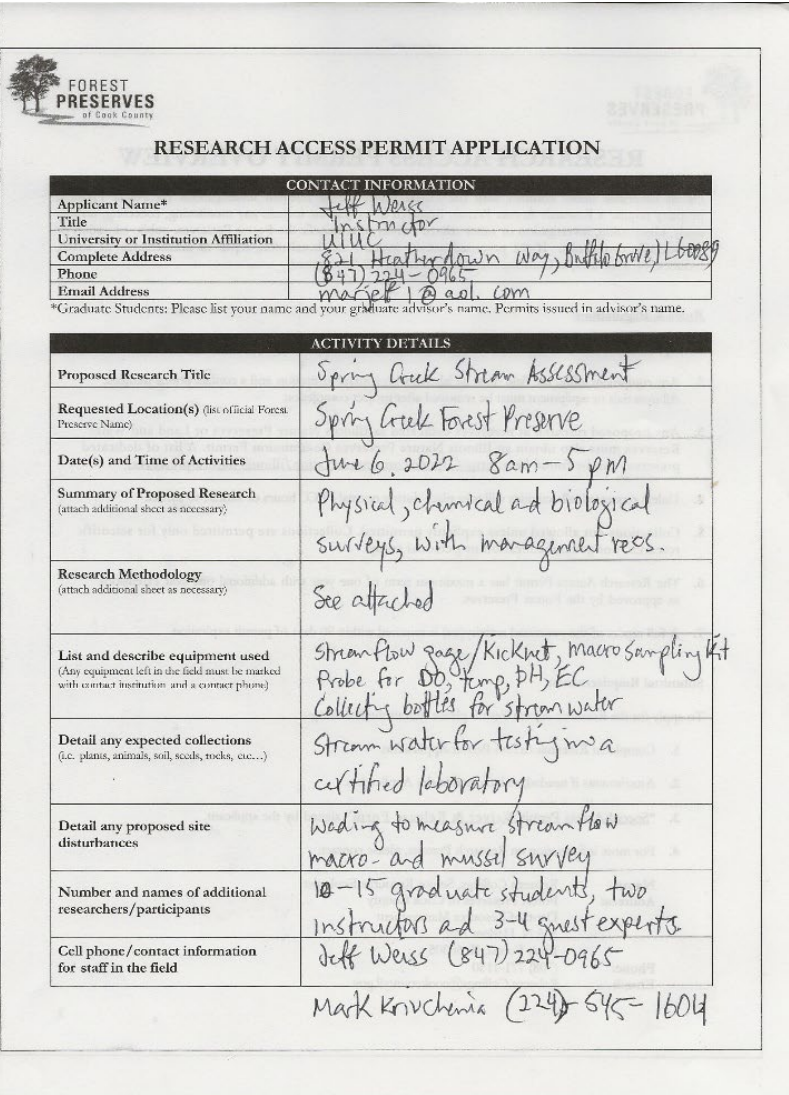 FOREST
PRESERVES
of Cook County
RESEARCH ACCESS PERMIT APPLICATION
CONTACT INFORMATION
Applicant Name* Jeff Weiss
Title Instructor
University or Institution Affiliation UIUC
Complete Address 821 Heatherdown Way, Buffalo Grove, IL 60089
Phone (847) 224-0965
Email Address marjeff1@aol.com
*Graduate Students: Please list your name and your graduate advisor's name. Permits issued in advisor's name.
ACTIVITY DETAILS
Proposed Research Title Spring Creek Stream Assessment
Requested Location(s) (list official Forest
Preserve Name) Spring Creek Forest Preserve
Date(s) and Time of Activities June 6, 2022 8am-5pm
Summary of Proposed Research
(attach additional sheet as necessary)
Physical, chemical and biological
surveys, with management recs.
Research Methodology
(attach additional sheet as necessary)
See attached
List and describe equipment used
(Any equipment left in the field must be marked
with contact institution and a contact phone)
Streamflow gage/Kicknet, macro sampling kit
Probe for DO, temp, pH, EC
Collecting bottles for stream water
Detail any expected collections
(i.e. plants, animals, soil, seeds, rocks, etc...)
Stream water for testing in a
certified laboratory
Detail any proposed site
disturbances
Wading to measure streamflow
macro- and mussel survey
Number and names of additional
researchers/participants
10-15 graduate students, two
instructors and 3-4 guest experts.
Cell phone/contact information
for staff in the field
Jeff Weiss (847) 224-0965
Mark Krivchenia (224)-545-1604